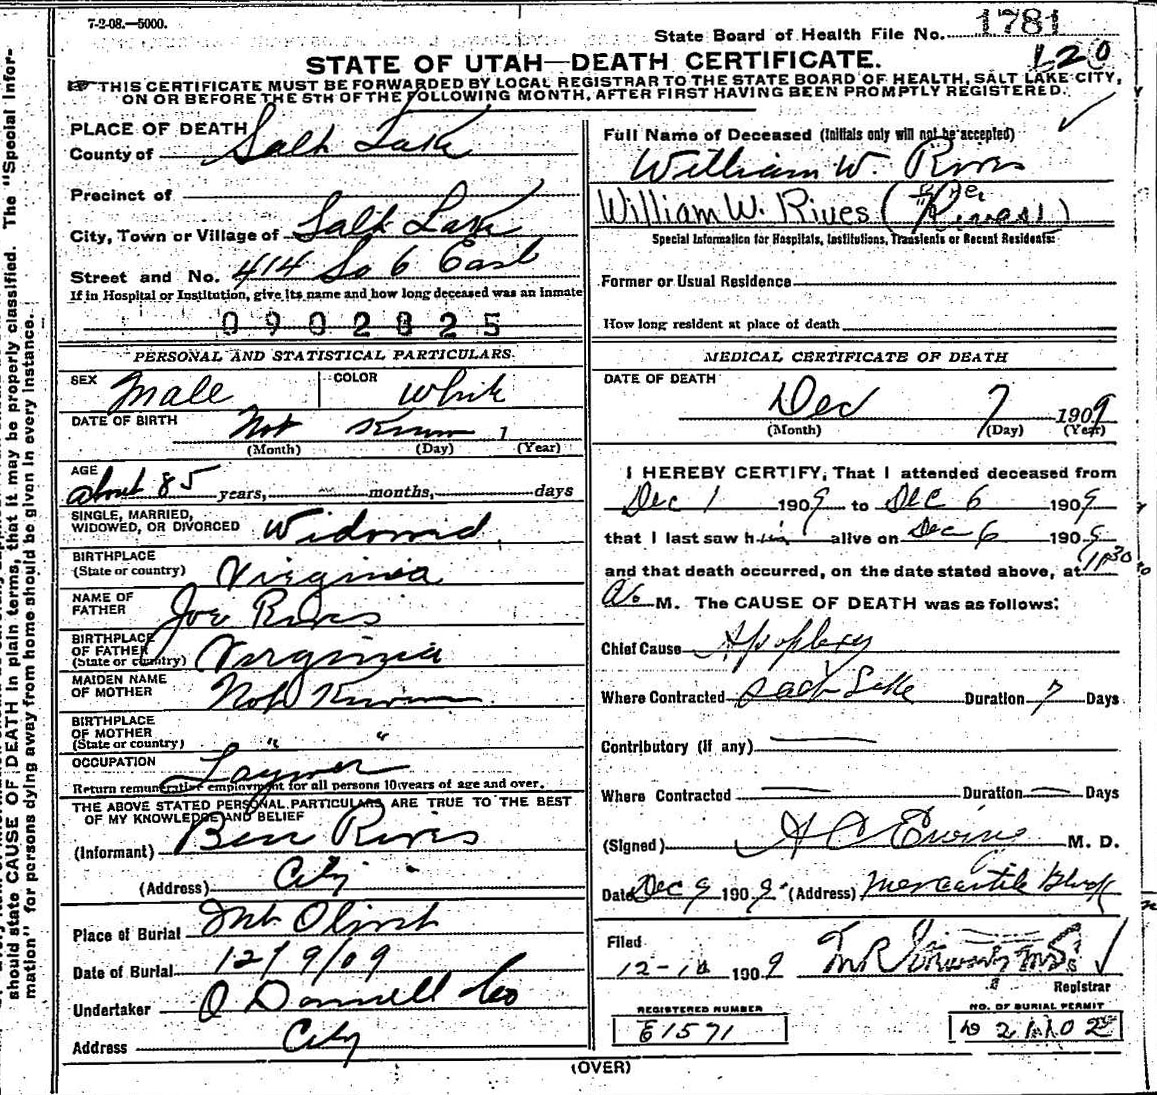 7-2-08.—5000.
State Board of Health File No. 1781
120
STATE OF UTAH—DEATH CERTIFICATE.
THIS CERTIFICATE MUST BE FORWARDED BY LOCAL REGISTRAR TO THE STATE BOARD OF HEALTH, SALT LAKE CITY,
ON OR BEFORE THE 5TH OF THE FOLLOWING MONTH, AFTER FIRST HAVING BEEN PROMPTLY REGISTERED.
should state CAUSE OF DEATH in plain terms, that it may be properly classified. The "Special Infor-
mation" for persons dying away from home should be given in every instance.
PLACE OF DEATH
County of Salt Lake
Precinct of
City, Town or Village of Salt Lake
Street and No. 414 So 6 East
If in Hospital or Institution, give its name and how long deceased was an inmate
0902825
PERSONAL AND STATISTICAL PARTICULARS.
SEX Male COLOR White
DATE OF BIRTH Not Known 1
(Month) (Day) (Year)
AGE
about 85 years, months, days
SINGLE, MARRIED,
WIDOWED, OR DIVORCED Widowed
BIRTHPLACE
(State or country) Virginia
NAME OF
FATHER Joe Rives
BIRTHPLACE
OF FATHER
(State or country) Virginia
MAIDEN NAME
OF MOTHER Not Known
BIRTHPLACE
OF MOTHER
(State or country) " "
OCCUPATION
Return remunerative employment for all persons 10 years of age and over.
THE ABOVE STATED PERSONAL PARTICULARS ARE TRUE TO THE BEST
OF MY KNOWLEDGE AND BELIEF
(Informant) Ben Rives
(Address) City
Place of Burial Mt Olivet
Date of Burial 12/9/09
Undertaker O Donnell & Co
Address City
Full Name of Deceased (Initials only will not be accepted)
William W. Rives
William W. Rives (
Special Information for Hospitals, Institutions, Transients or Recent Residents:
Former or Usual Residence
How long resident at place of death
MEDICAL CERTIFICATE OF DEATH
DATE OF DEATH
Dec 7 1909
(Month) (Day) (Year)
I HEREBY CERTIFY, That I attended deceased from
Dec 1 1909 to Dec 6 1909
that I last saw him alive on Dec 6 1909
and that death occurred, on the date stated above, at 1130
A. M. The CAUSE OF DEATH was as follows:
Chief Cause Apoplexy
Where Contracted Salt Lake Duration 7 Days
Contributory (if any)
Where Contracted Duration Days
(Signed) M. D.
Date Dec 9 1909 (Address) Mercantile Block
Filed
12-10 1909
Registrar
REGISTERED NUMBER
E1571
NO. OF BURIAL PERMIT
(OVER)